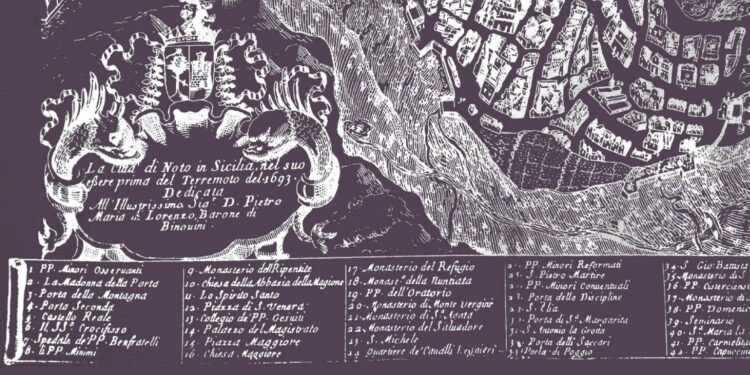 La Città di Noto in Sicilia, nel suo
essere prima del Terremoto del 1693.
Dedicata
All' Illustrissimo Sig.r D. Pietro
Maria di Lorenzo, Barone di
Binouini.
1 PP. Minori Osseruanti
2. La Madonna della Porta
3. Porta della Montagna
4. Porta Seconda
5. Castello Reale
6. Il SSo Crocifisso
7. Spedale de PP. Benfratelli
8. li PP Minimi
9. Monasterio dell Ripentite
10. Chiesa della Abbazia della Magione
11. Lo Spirito Santo
12. Piazza di S. Venera
13. Collegio de PP. Gesuiti
14. Palazzo del Magistrato
15. Piazza Maggiore
16. Chiesa Maggiore
17. Monasterio del Refugio
18. Monast.o della Nuntiata
19. PP. dell'Oratorio
20. Monasterio di Monte Vergine
21. Monasterio di S.ta
22. Monasterio del Salvadore
23. S. Michele
24. Quartiere de Cavalli Leggieri
PP. Minori Reformati
S. Pietro Martire
PP. Minori Conuentuali
Porta della Discipline
S. Elia
Porta di S.a Margarita
S. Antonio la Grotta
Porta delli Saccari
Porta di Poggio
34. S. Gio: Battista
Monasterio di
PP Cisterciens
Monasterio di
PP. Domenic
39. Seminario
40. S. Maria
41. PP. Carmelita
42. PP. Capuccin